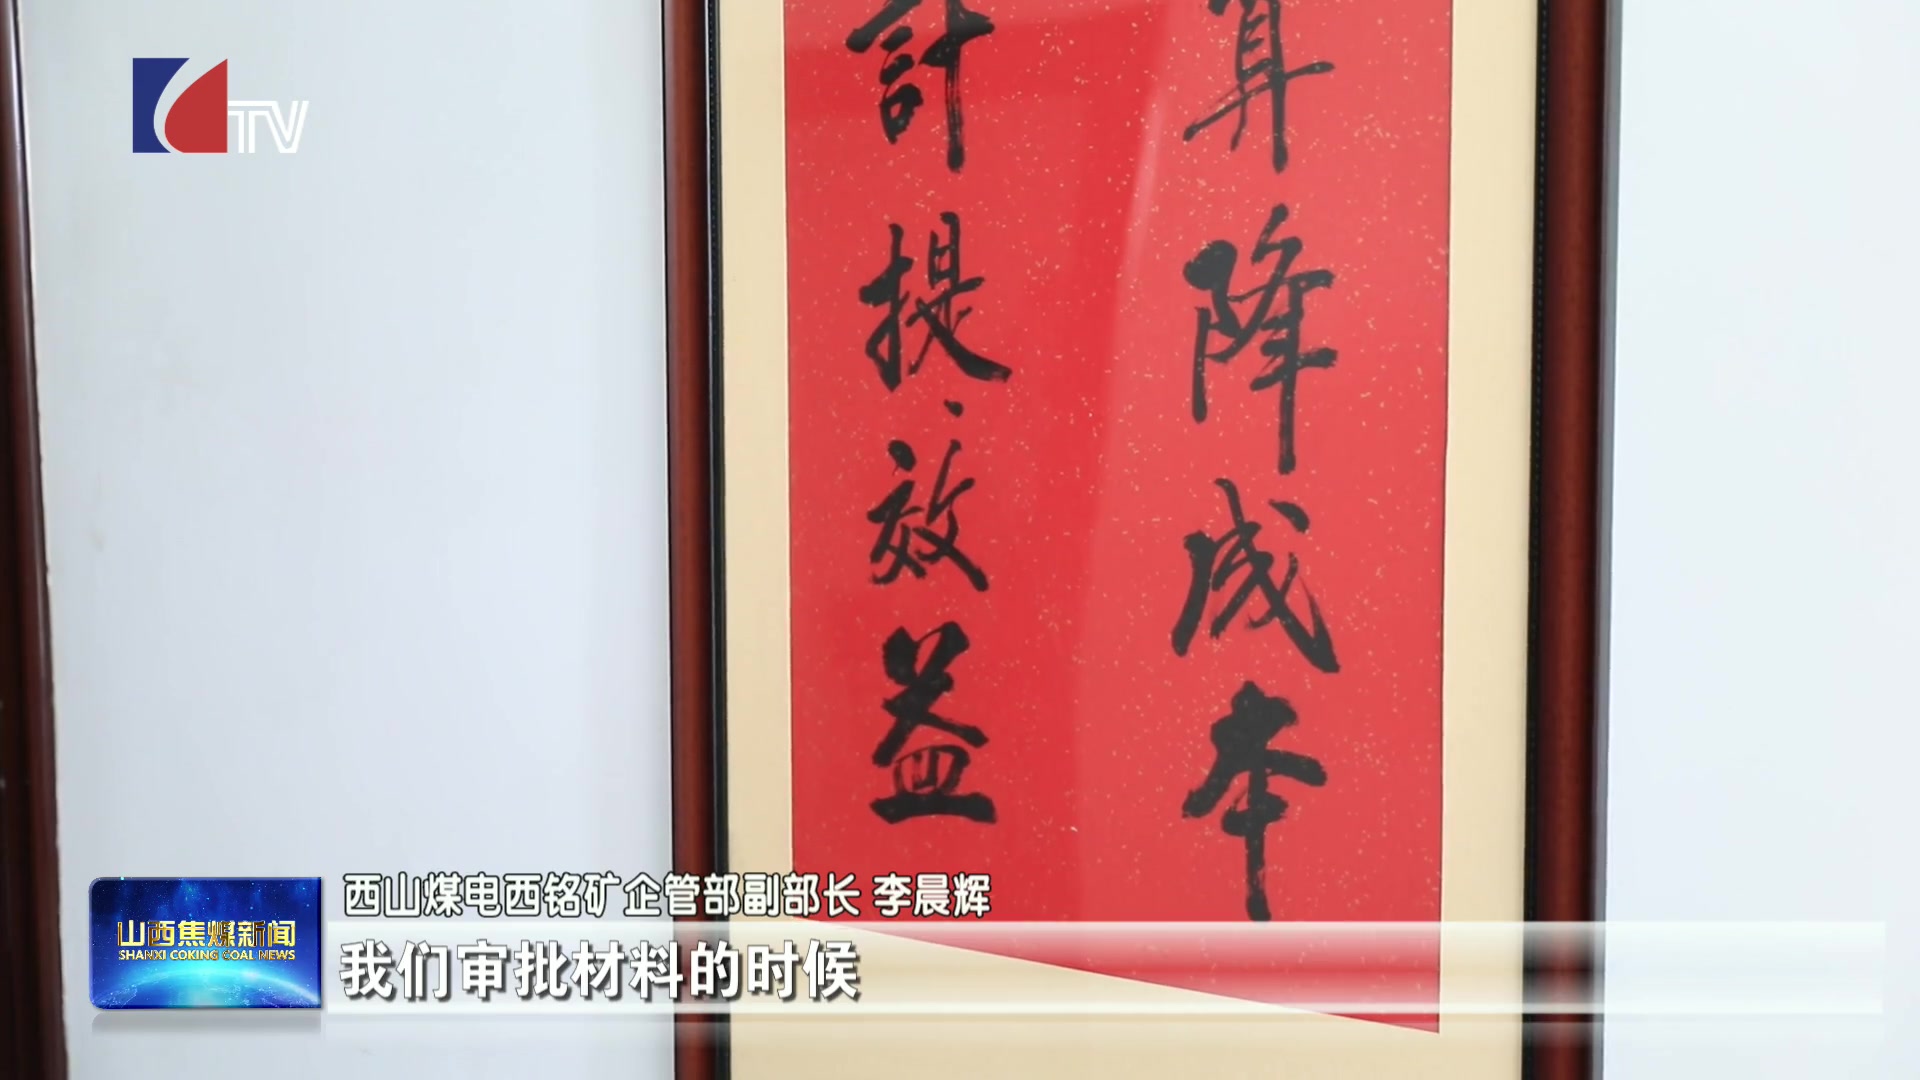 TV
算降成本
計提效益
西山煤电西铭矿企管部副部长 李晨辉
山西焦煤新闻
SHANXI COKING COAL NEWS
我们审批材料的时候